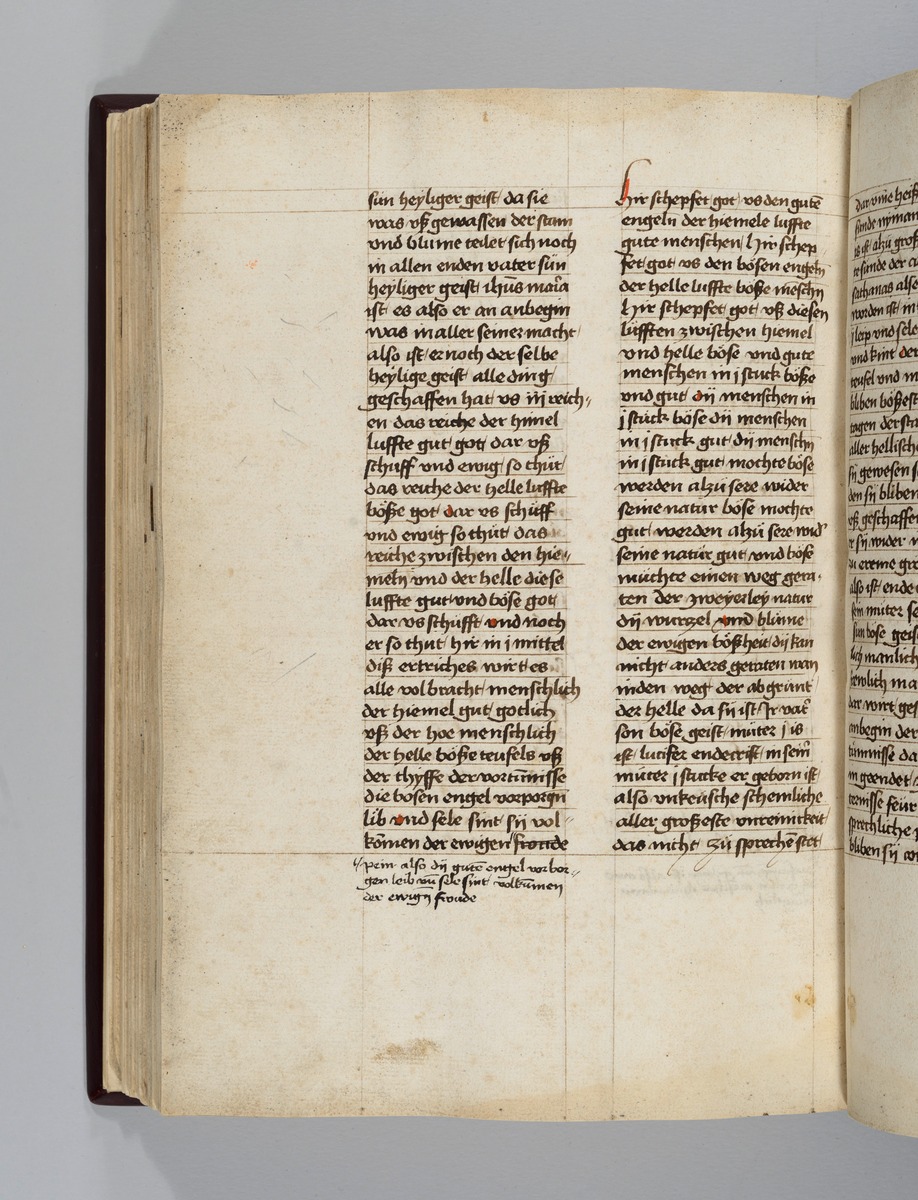 sün heyliger geist / da sie
was vß gewassen der stam
vnd blume teilet sich noch
in allen enden vater sün
heyliger geist ihūs maīa
ist / es also er an anbegin
was in aller seiner macht
also ist / er noch der selbe
heylige geist / alle ding
geschaffen hat vs iij reich„
en das reiche der himel
luffte gut got / dar vß
schuff vnd ewig so thüt
das reiche der helle luffte
böße got / dar vs schüff
vnd ewig so thüt das
reiche zwischen den hie„
meln vnd der helle diese
luffte gut vnd böse got
dar vs schufft vnd noch
er so thut / hir in j mittel
diß ertriches wirt es
alle volbracht menschlich
der hiemel gut / gotlich
vß der hoe menschlich
der helle böße teufels vß
der thyffe der vortümisse
die bosen engel vorporgn
lib vnd sele sint / sij vol„
kōmen der ewigen froude
pein also dij gutē engel vorbor„
gen leib vn̄ sele sint volkūmen
der ewign froude
hir schepfet got / vs den gutē
engeln der hiemele luffte
gute menschen / hir schep
fet got / vs den bösen engeln
der helle luffte böße meschn
hir schepfet got / vß diesen
lüfften zwischen hiemel
vnd helle böse vnd gute
menschen in j stuck böße
vnd gut / dij menschen in
j stück böse dij menschen
in j stuck gut / dij menschn
in j stück gut / mochte böse
werden alzü sere wider
seine natur böse mochte
gut / werden alzü sere wid'
seine natür gut / vnd böse
müchte einen weg gera„
ten der zweyerley natur
dij wurzel vnd blume
der ewigen bößheit / dij kan
nicht anders geraten wan
in den weg der abgrunt
der helle da sij ist / Ir vat'
son böse geist / müter j is
ist / lucifer endecrist / in sein'
müter j stucke er geborn ist
also vnkeüsche schemliche
aller großeste vnreinikeit
das nicht / zü sprechē stet